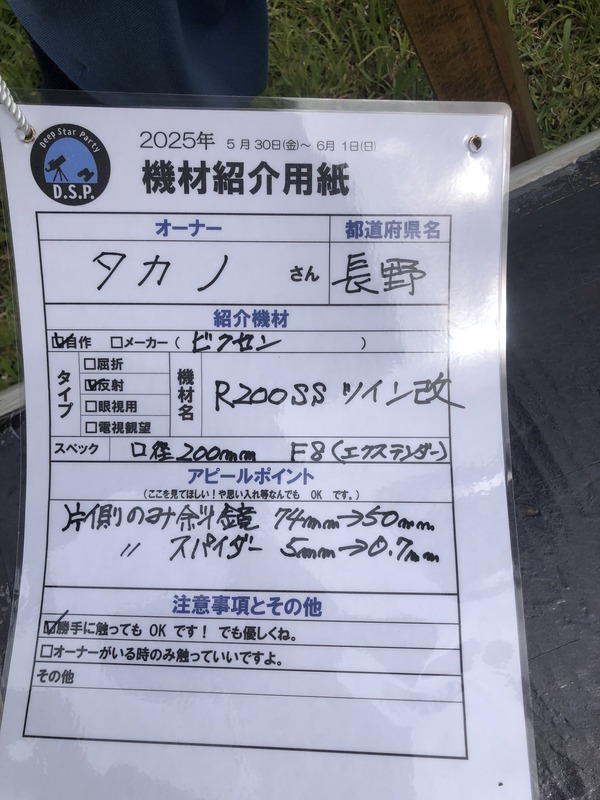 Deep Star Party
D.S.P.
2025年 5月30日(金)～6月1日(日)
機材紹介用紙
オーナー 都道府県名
タカノ さん 長野
紹介機材
☑自作 □メーカー( ビクセン )
タイプ
□屈折
☑反射
□眼視用
□電視観望
機材名
R200SS ツイン改
スペック 口径200mm F8(エクステンダー)
アピールポイント
(ここを見てほしい!や思い入れ等なんでも OK です。)
片側のみ斜鏡 74mm→50mm
〃 スパイダー 5mm→0.7mm
注意事項とその他
☑勝手に触っても OK です! でも優しくね。
□オーナーがいる時のみ触っていいですよ。
その他